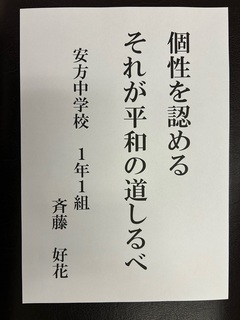 個性を認める
それが平和の道しるべ
安方中学校　１年１組
斉藤　好花